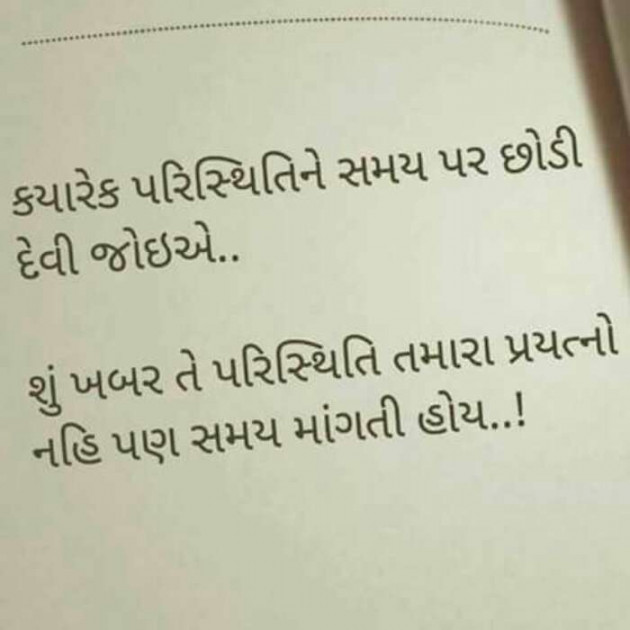 કયારેક પરિસ્થિતિને સમય પર છોડી
દેવી જોઇએ..
શું ખબર તે પરિસ્થિતિ તમારા પ્રયત્નો
નહિ પણ સમય માંગતી હોય..!